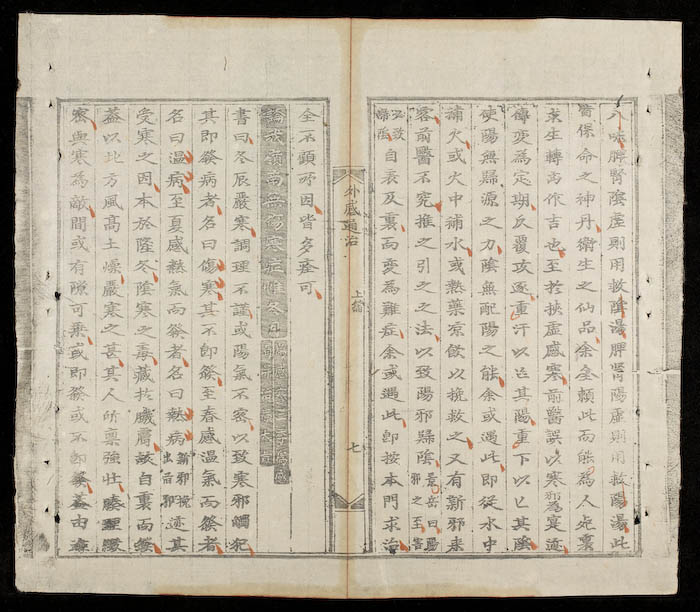 八味脾腎陰虛則用救陰湯脾腎陽虛則用救陽湯此
皆保命之神丹衛生之仙品余全賴此而能為人死裏
求生轉凶作吉也至於挾虛感寒前醫誤以寒為定迹
傳變為定期反覆攻逐重汗以亡其陽重下以亡其陰
使陽無歸源之力陰無配陽之能余或遇此即從水中
補火或火中補水或熱藥凉飲以挽救之又有新邪未
客前醫不究推之引之之法以致陽邪歸陰景岳曰陽邪之至害
必致歸陰自表及裏而變為難症余或遇此即按本門求治
外感通治 上篇 七
全不顧所因皆多產可
嶺南無傷寒症惟冬月
書曰冬辰嚴寒調理不謹或陽氣不密以致寒邪觸犯
其即發病者名曰傷寒其不即發至春感溫氣而發者
名曰溫病至夏感熱氣而發者名曰熱病新邪出舊邪其
受寒之因本於隆冬陰寒之毒藏於臟腑故自裏而發
蓋以北方風高土燥嚴寒之甚其人所稟強壯腠理
密與寒為敵間或有隙可乘或即發或不即發蓋由